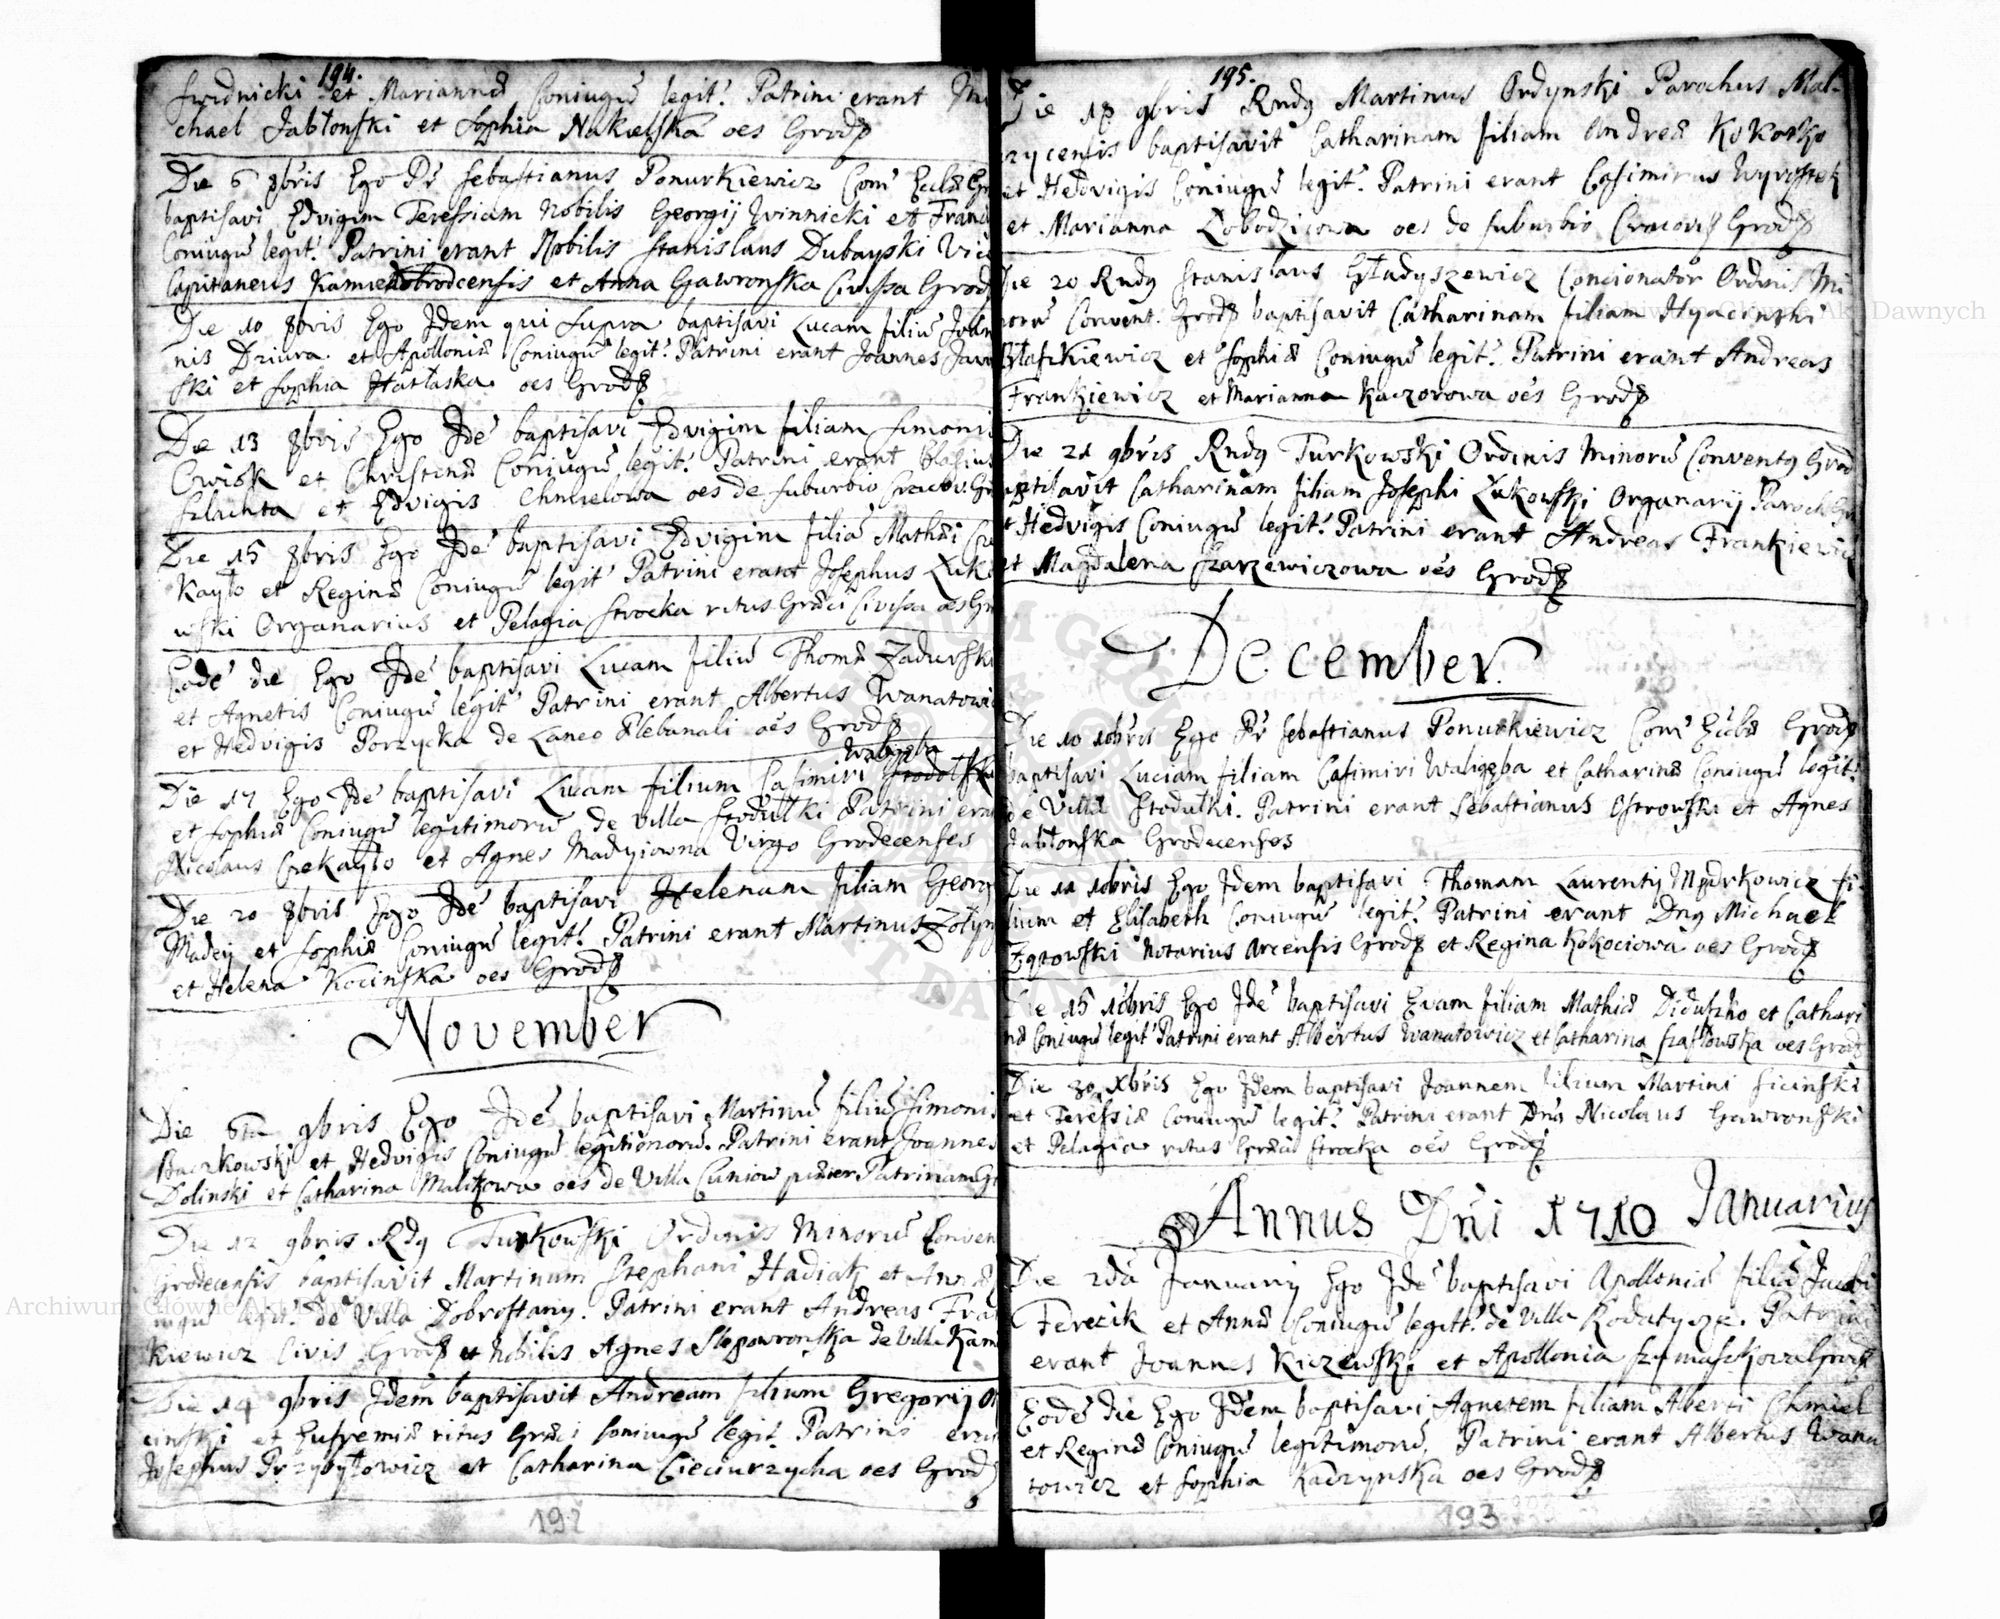 194.
Swidnicki et Mariannæ Coniugũ legit: Patrini erant Mi
chael Jabłonski et Sophia Nakielska oes Grod
Die 6 8bris Ego Pr Sebastianus Ponurkiewicz Com Eccl Gr
baptisavi Edvigim Teressiam Nobilis Georgij Winnicki et Franc
Coniugũ legit: Patrini erant Nobilis Stanislaus Dubayski Vice
Capitaneus et Anna Gawronska Civissa Grod
Die 10 8bris Ego Idem qui supra baptisavi Lucam filiũ Joan
nis Dziura et Apolloniæ Coniugũ legit: Patrini erant Joannes Jawo
ski et Sophia Hatłaska oes Grod
Die 13 8bris Ego Idẽ baptisavi Edvigim filiam Simonis
Cwiok et Christinæ Coniugũ legit: Patrini erant Blasius
Szlachta et Edvigis Chmielowa oes de suburbio Cracov: Gr
Die 15 8bris Ego Idẽ baptisavi Edvigim filiã Mathæi Cze
kayło et Reginæ Coniugũ legit Patrini erant Josephus Łuko
wski Organarius et Pelagia Strocka ritus Græci Civissa oes Gr
Eodẽ die Ego Idẽ baptisavi Lucam filiũ Thomæ Zadurski
et Agnetis Coniugũ legit Patrini erant Albertus Wanatowi
et Hedvigis Porzycka de Laneo Plebanali oes Grod
Waligęba
Die 17 Ego Idẽ baptisavi Lucam filium Casimiri
et Sophiæ Coniugũ legitimorũ de Villa Stodułki Patrini eran
Nicolaus Czekayło et Agnes Madyiowna Virgo Grodecenses
Die 20 8bris Ego Idẽ baptisavi Helenam filiam Georg
Madey et Sophiæ Coniugũ legit: Patrini erant Martinus Zołyn
et Helena Kocinska oes Grod
November
Die 6ta 9bris Ego Idẽ baptisavi Martinũ filiũ Simonis
Baczkowski et Hedvigis Coniugũ legitimorũ. Patrini erant Joannes
Dolinski et Catharina Malikowa oes de Villa Cuniow
Die 12 9bris Rdg Turkowski Ordinis Minorũ Conven
Grodecensis baptisavit Martinum Stephani Hadiak et Annæ
iugũ legit: de Villa Dobrostany. Patrini erant Andreas Fran
kiewicz Civis Grod et Nobilis Agnes Slepowronska de Villa Kam
Die 14 9bris Idem baptisavit Andream filium Gregorij
cinski et Eufremiæ ritus Græci Coniugũ legit Patrini eran
Josephus Przybyłowicz et Catharina Cieciurzycha oes Grod
192
195.
Die 18 9bris Rndg Martinus Ordynski Parochus Mal-
zycensis baptisavit Catharinam filiam Andreæ Kokoszko
et Hedvigis Coniugũ legit: Patrini erant Casimirus Wyrostek
et Marianna Łobodzicowa oes de suburbio Cracov Grod
Die 20 Rndg Stanislaus Gładyszewicz Concionator Ordinis Mi
norũ Convent. Grod baptisavit Catharinam filiam Hyacinthi
Błaszkiewicz et Sophiæ Coniugũ legit: Patrini erant Andreas
Frankiewicz et Marianna Kaczorowa oes Grod
Die 21 9bris Rndg Turkowski Ordinis Minorũ Conventg Grod
aptisavit Catharinam filiam Josephi Łukowski Organarij Paroch Gr
t Hedvigis Coniugũ legit: Patrini erant Andreas Frankiewicz
et Magdalena Szarzewiczowa oes Grod
December
Die 10 10bris Ego Pr Sebastianus Ponurkiewicz Com Eccl Grod
baptisavi Luciam filiam Casimiri Waligęba et Catharinæ Coniugũ legit:
de Villa Stodułki. Patrini erant Sebastianus Ostrowski et Agnes
Jabłonska Grodecenses
Die 11 10bris Ego Idem baptisavi Thomam Laurentij Mędrkowicz fi-
lium et Elisabeth Coniugũ legit: Patrini erant Dng Michael
Zgrowski Notarius Arcensis Grod et Regina Kokociowa oes Grod
Die 15 10bris Ego Idẽ baptisavi Evam filiam Mathiæ Diduszko et Cathari
næ Coniugũ legit Patrini erant Albertus Wanatowicz et Catharina Szastowska oes Grod
Die 30 Xbris Ego Idem baptisavi Joannem filium Martini Sicinski
et Teressiæ Coniugũ legit: Patrini erant Dng Nicolaus Gawronski
et Pelagia ritus Græci Strocka oes Grod
Annus Dñi 1710 Januarius
Die 2da Januarij Ego Idẽ baptisavi Apolloniã filiã Jacobi
Ferecik et Annæ Coniugũ legitt: de Villa Rodatycze. Patrini
erant Joannes Kiczewski et Apollonia Szymaszkowa Grod
Eodẽ die Ego Idem baptisavi Agnetem filiam Alberti Chmiel
et Reginæ Coniugũ legitimorũ. Patrini erant Albertus Wana
towicz et Sophia Kaczynska oes Grod
193
Archiwum Główne Akt Dawnych
Archiwum Główne Akt Dawnych